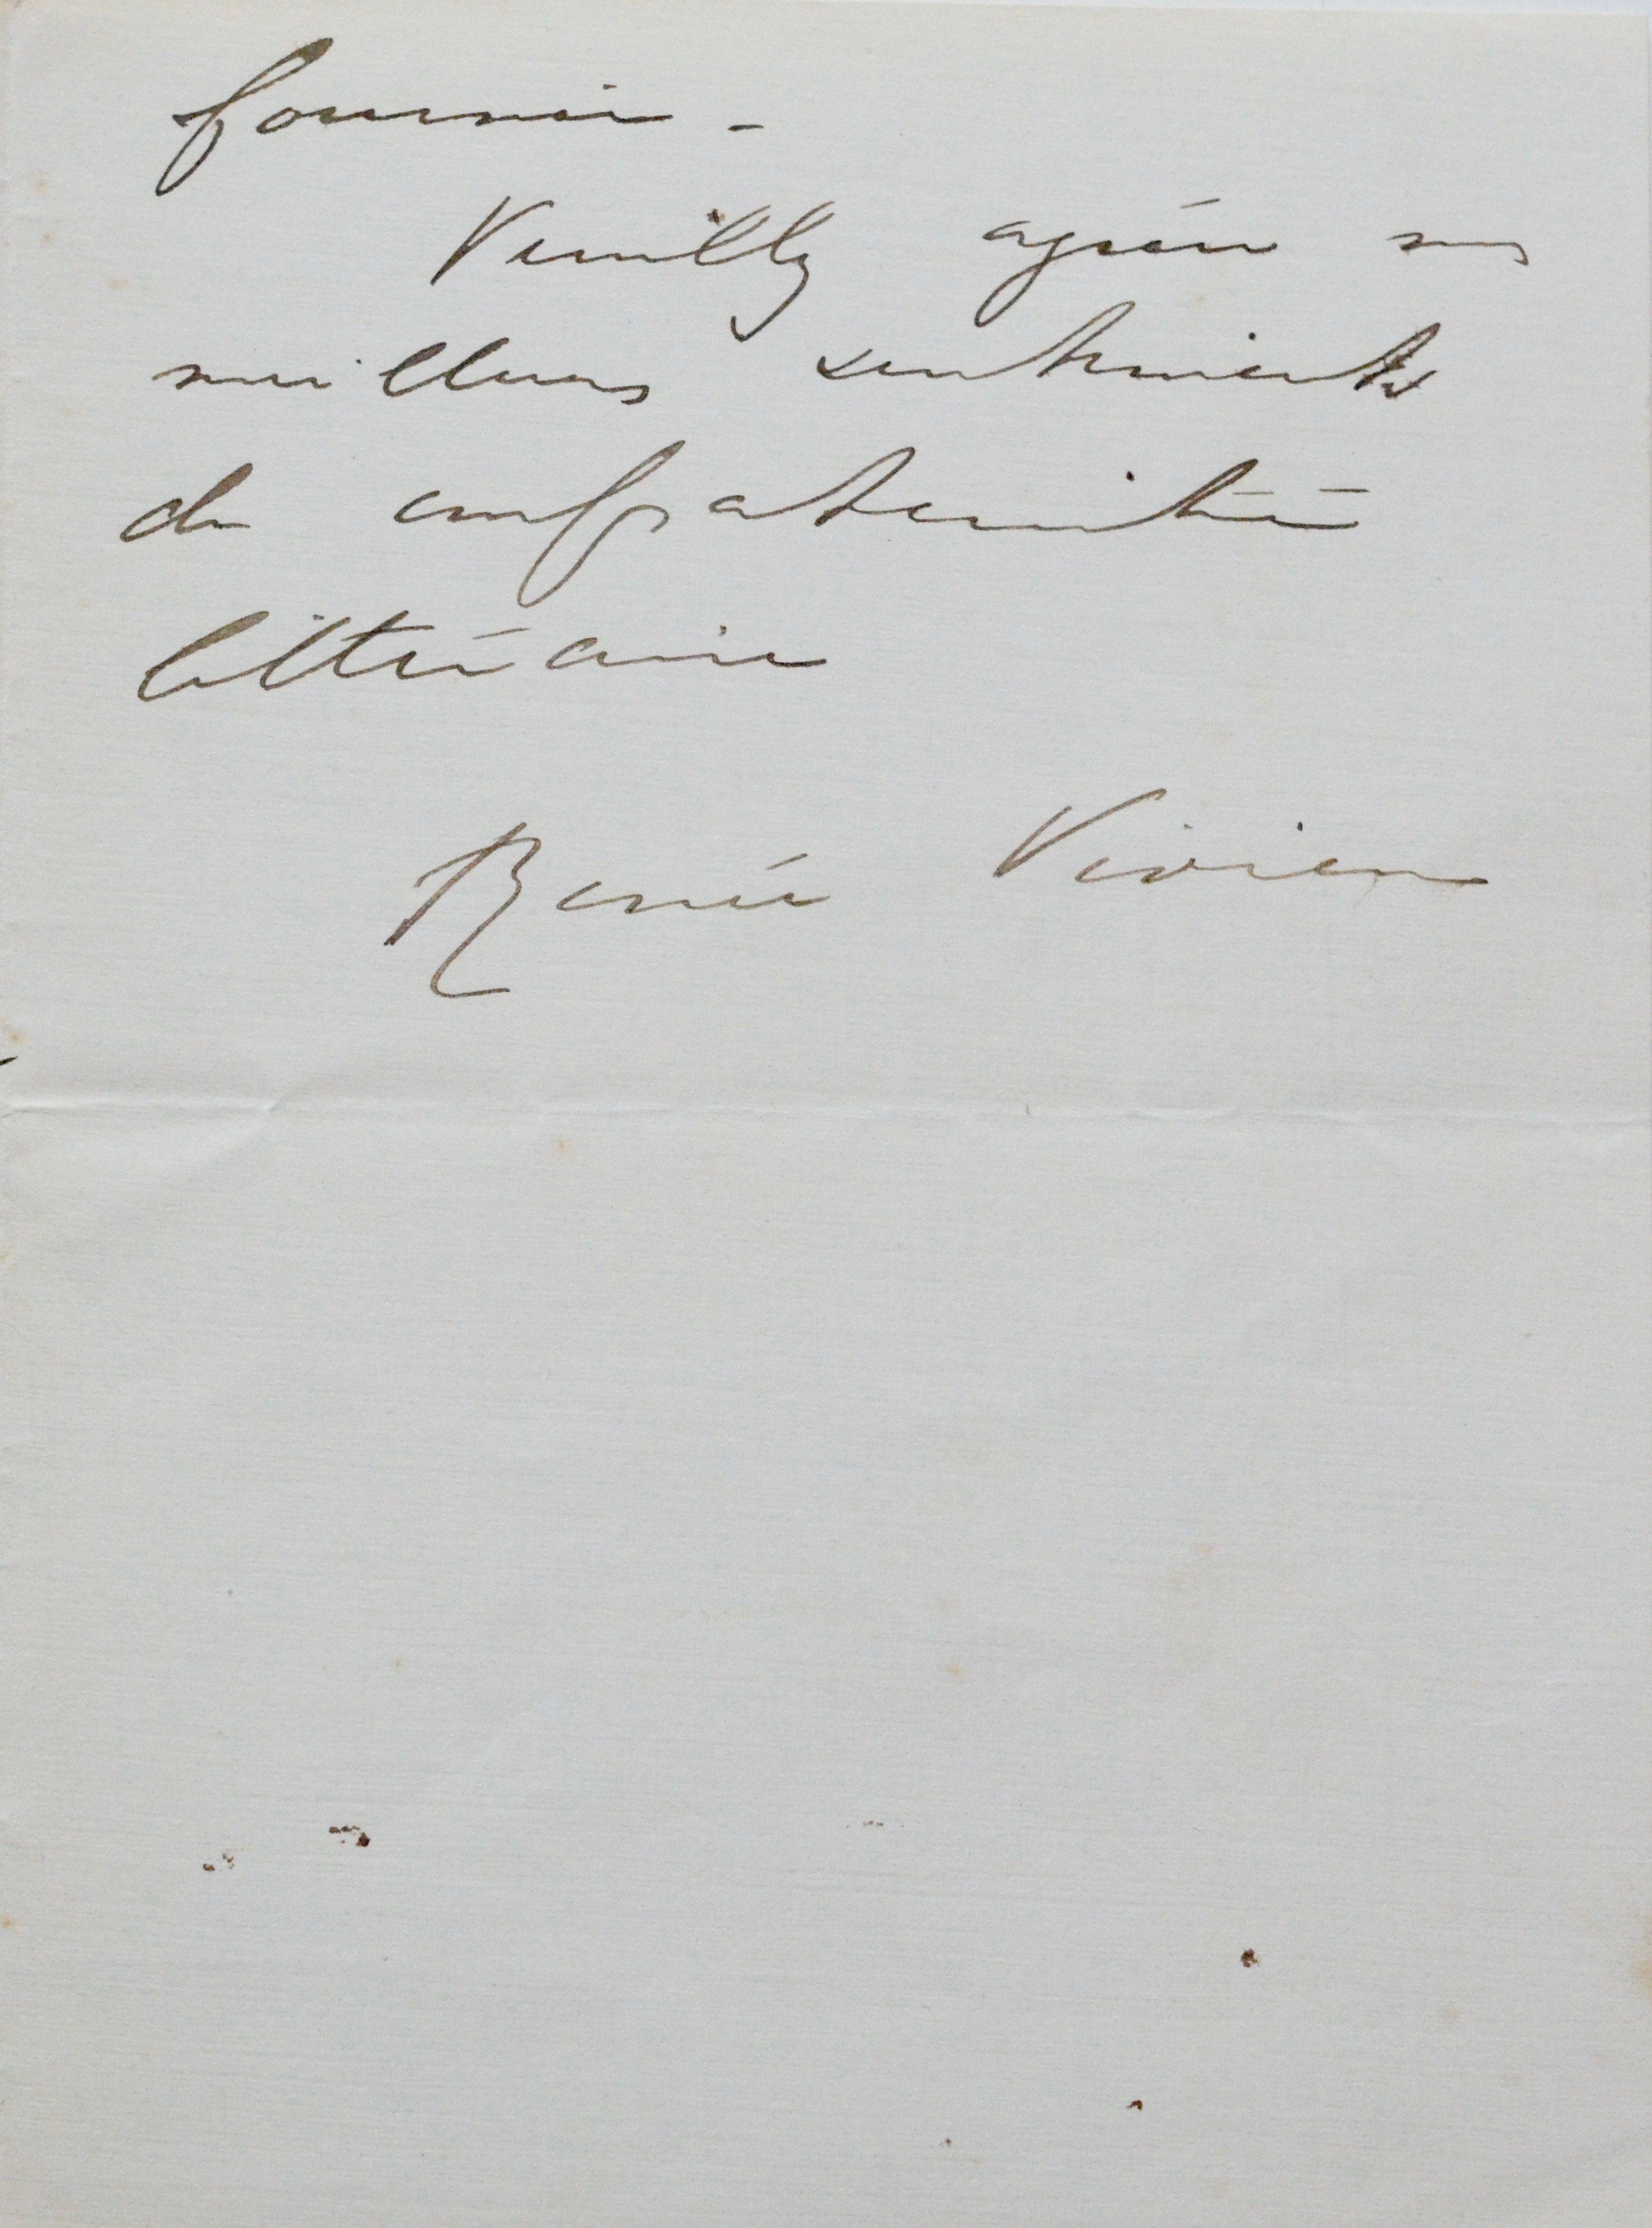 fournir -
Veuillez agréer mes
meilleurs sentiments
de confraternité
littéraire
Renée Vivien